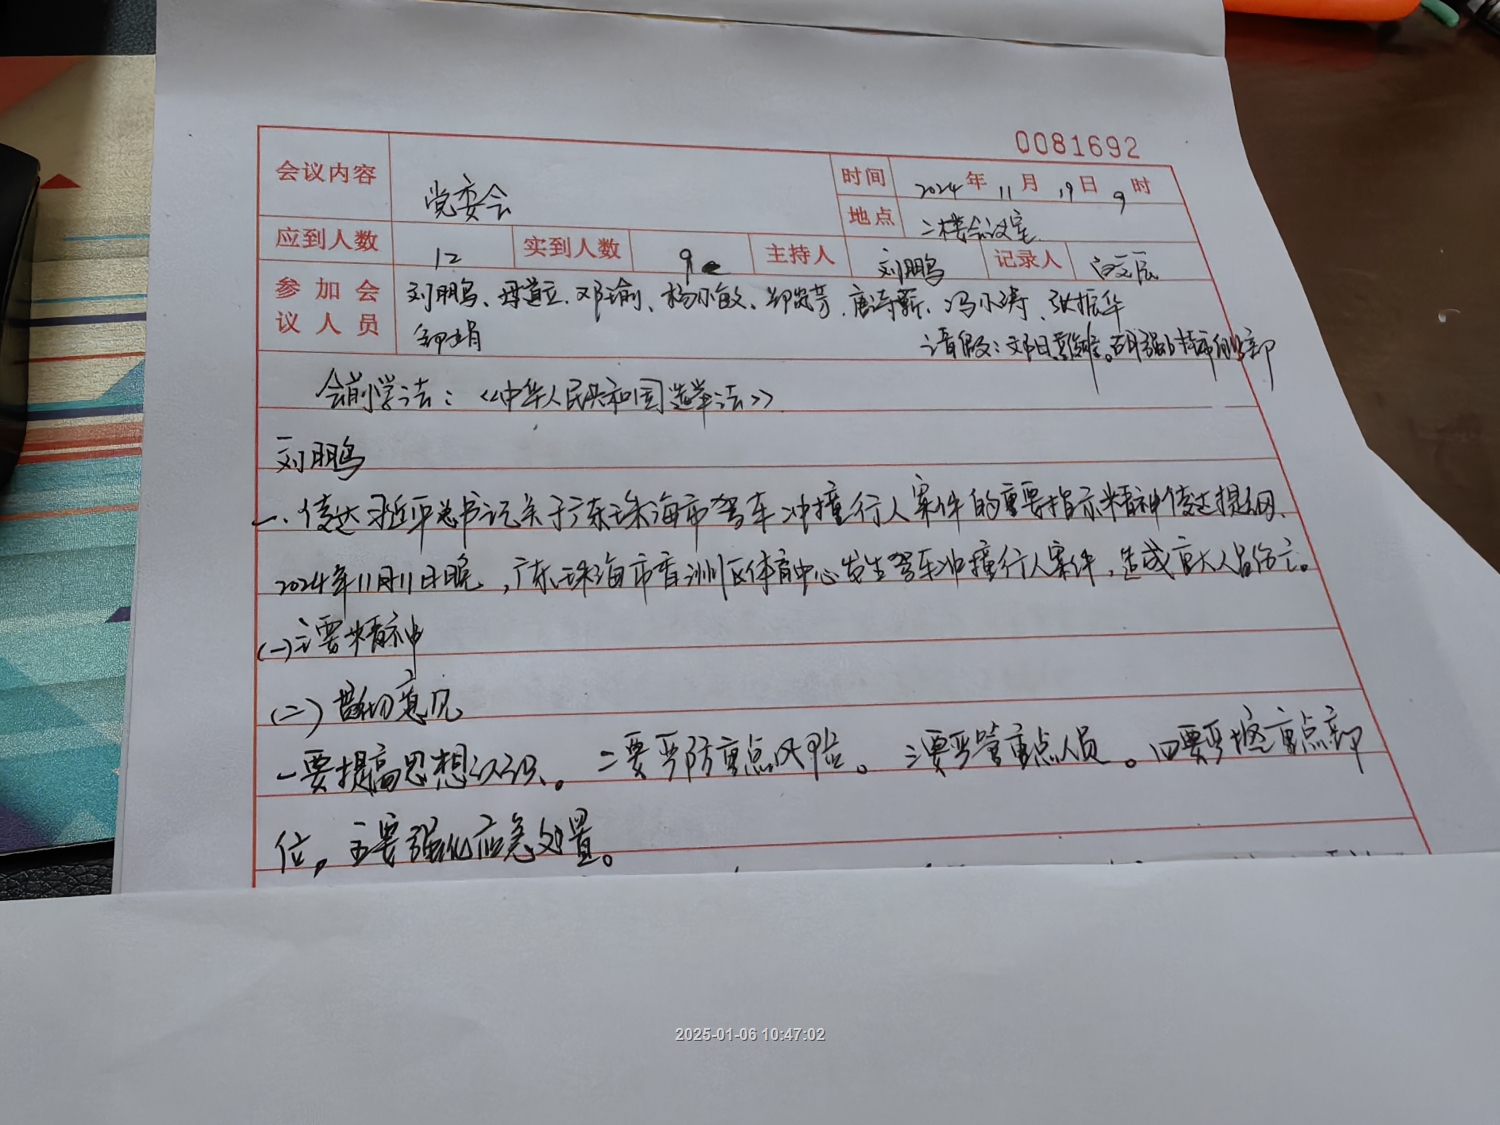 0081692
会议内容 党委会 时间 2024年11月19日9时
地点 二楼会议室
应到人数 12 实到人数 9 主持人 刘鹏 记录人
参加会 刘鹏、母道立、邓瑜、杨小敏、郑岚芳、唐诗薪、冯小涛、张振华
议人员 邹娟 请假:
会前学法:《中华人民共和国选举法》
刘鹏
一、传达习近平总书记关于广东珠海市驾车冲撞行人案件的重要指示精神传达提纲、
2024年11月11日晚,广东珠海市香洲区体育中心发生驾车冲撞行人案件,造成重大人员伤亡。
(一)主要精神
(二)意见
一要提高思想认识。二要严防重点风险。三要严管重点人员。四要严控重点部
位,五要强化应急处置。
2025-01-06 10:47:02